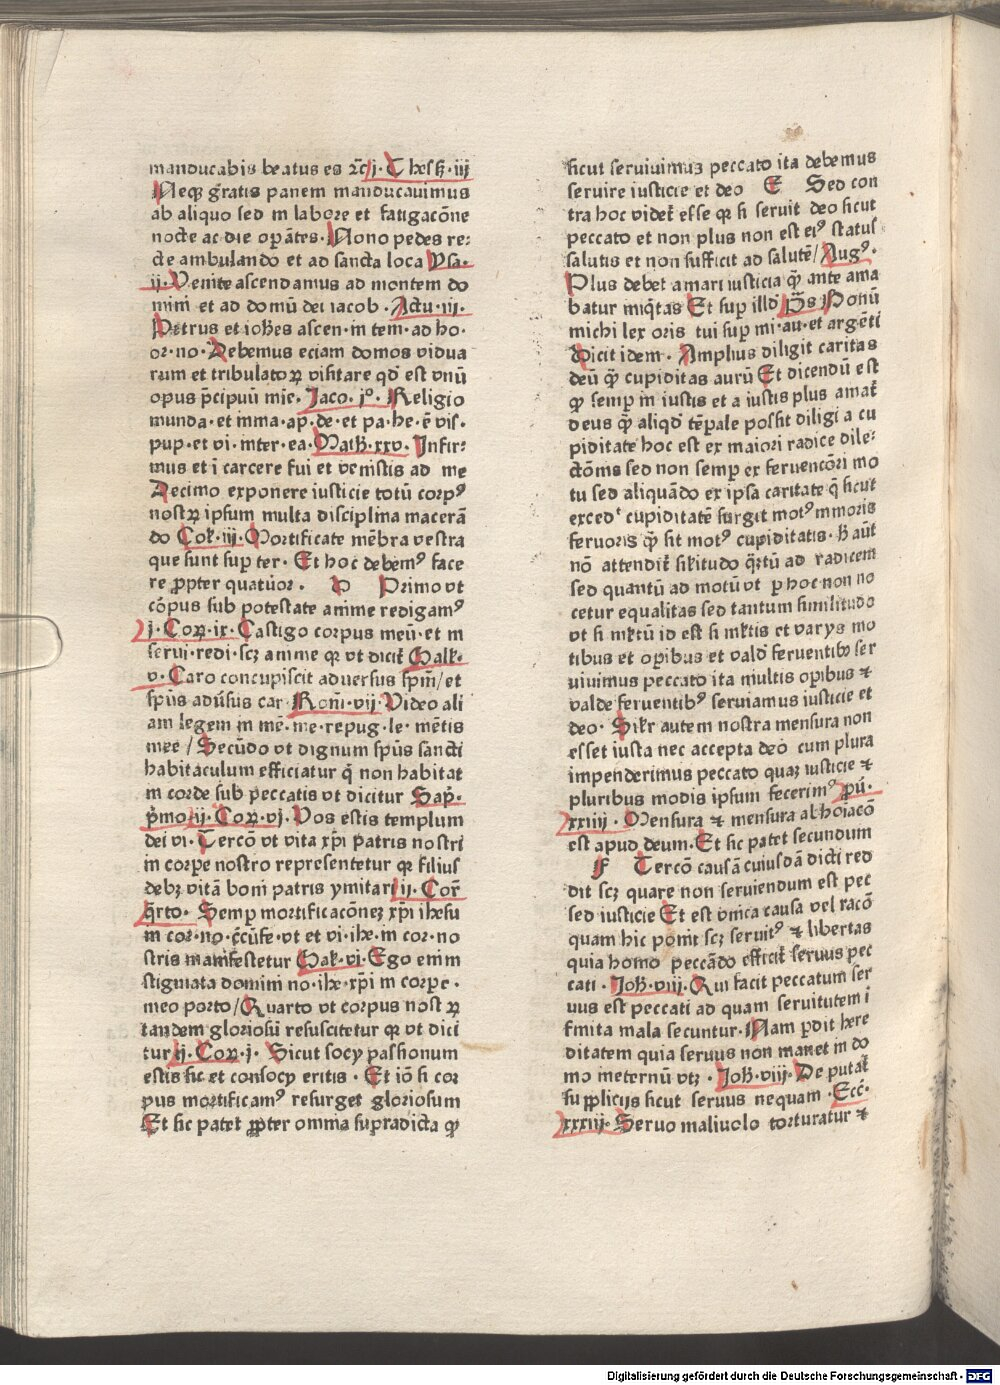 manducabis beatus es ⁊c̄ ij· Thesꝭ· iij
Neqꝫ gratis panem manducauimus
ab aliquo sed in labore et fatigacōne
nocte ac die opāntes· Nono pedes re⸗
cte ambulando et ad sancta loca Ysa·
ij· Venite ascendamus ad montem do
mini et ad domū dei iacob · Actu·iij·
Petrus et iohēs ascen·in tem·ad ho·
or·no· Debemus eciam domos vidua
rum et tribulatoꝝ visitare qd̓ est vnū
opus p̄cipuū mie· Jaco· jº· Religio
munda·et inma·ap·de·et pa·he·ē vis·
pup·et vi·inter·ea·Math·xxv· Infir⸗
mus et i carcere fui et venistis ad me
Decimo exponere iusticie totū corpꝰ
nostꝝ ipsum multa disciplina macerā
do Colꝭ·iij· Mortificate mēbra vestra
que sunt suꝑ ter· Et hoc debemꝰ face
re ꝓpter quatuor· D Primo vt
cōpus sub potestate anime redigamꝰ
j·Coꝝ·ix· Castigo corpus meū·et in
serui·redi·scꝫ anime qꝛ vt dicit̄ Galꝭ·
v· Caro concupiscit aduersus spm̄/et
spūs adūsus car Rom̄·vij· Video ali
am legem in mē·me·repug·le·mētis
mee / Secūdo vt dignum spūs sancti
habitaculum efficiatur q̄ non habitat
in corde sub peccatis vt dicitur Sap̄·
p̄mo· ij·Coꝝ·vj· Vos estis templum
dei vi· Tercō vt vita xp̄i patris nostri
in corpe nostro representetur qꝛ filius
debꝫ vitā boni patris ymitari ij· Cor̄
q̄rto· Semp mortificacōneꝫ xp̄i ihesu
in cor·no·c̄cūfe·vt et vi·ihē·in cor·no
stris manifestetur Galꝭ·vi· Ego enim
stigmata domini no·ihē·xp̄i in corpe·
meo porto/ Quarto vt corpus nostꝝ
tandem gloriosū resuscitetur qꝛ vt dici
tur ij·Coꝝ·j· Sicut socy passionum
estis sic et consocy eritis · Et iō si cor
pus mortificamꝰ resurget gloriosum
Et sic patet ꝓpter omnia supradicta qꝙ
sicut seruiuimꝰ peccato ita debemus
seruire iusticie et deo E Sed con
tra hoc videt̄ esse qꝛ si seruit deo sicut
peccato et non plus non est eiꝰ status
salutis et non sufficit ad salutē/ Augꝰ·
Plus debet amari iusticia qͣ ante ama
batur iniqͥtas Et suꝑ illd̓ p̄s Bonū
michi lex oris tui suꝑ mi·au·et argēti
Dicit idem· Amplius diligit caritas
deū qͣ cupiditas aurū Et dicendū est
ꝙ semꝑ in iustis et a iustis plus amat̄
deus qͣ aliqd̓ tēpale possit diligi a cu
piditate hoc est ex maiori radice dile⸗
ctōnis sed non semꝑ ex feruencōri mo
tu sed aliquādo ex ipsa caritate q̄ sicut
excedᵗ cupiditatē surgit motꝰ minoris
feruoris qͣ sit motꝰ cupiditatis· H aūt
nō attendit̄ silitudo q̄rtū ad radicem
sed quantū ad motū vt ꝑ hoc non no
cetur equalitas sed tantum similitudo
vt si ml̓tū id est si ml̓tis et varys mo
tibus et opibus et vald̓ feruentibꝰ ser
uiuimus peccato ita multis opibus ⁊
valde feruentibꝰ seruiamus iusticie et
deo· Silr autem nostra mensura non
esset iusta nec accepta deo cum plura
impenderimus peccato quaꝫ iusticie ⁊
pluribus modis ipsum fecerimꝰ ꝓū·
xxiiij· Mensura ⁊ mensura abhoīacō
est apud deum· Et sic patet secundum
F Tercō causā cuiusdā dicti red
dit scꝫ quare non seruiendum est pec
sed iusticie Et est vnica causa vel racō
quam hic ponit scꝫ seruitꝰ ⁊ libertas
quia homo peccādo efficit̄ seruus pec
cati· Joh·viij· Qui facit peccatum ser
uus est peccati ad quam seruitutem i
finita mala secuntur· Nam ꝑdit here
ditatem quia seruus non manet in do
mo ineternū vtꝫ· Joh·viij· Deputat̄
supplicijs sicut seruus nequam· Ecc̄·
xxxiij· Seruo maliuolo torturatur ⁊
Digitalisierung gefördert durch die Deutsche Forschungsgemeinschaft - DFG